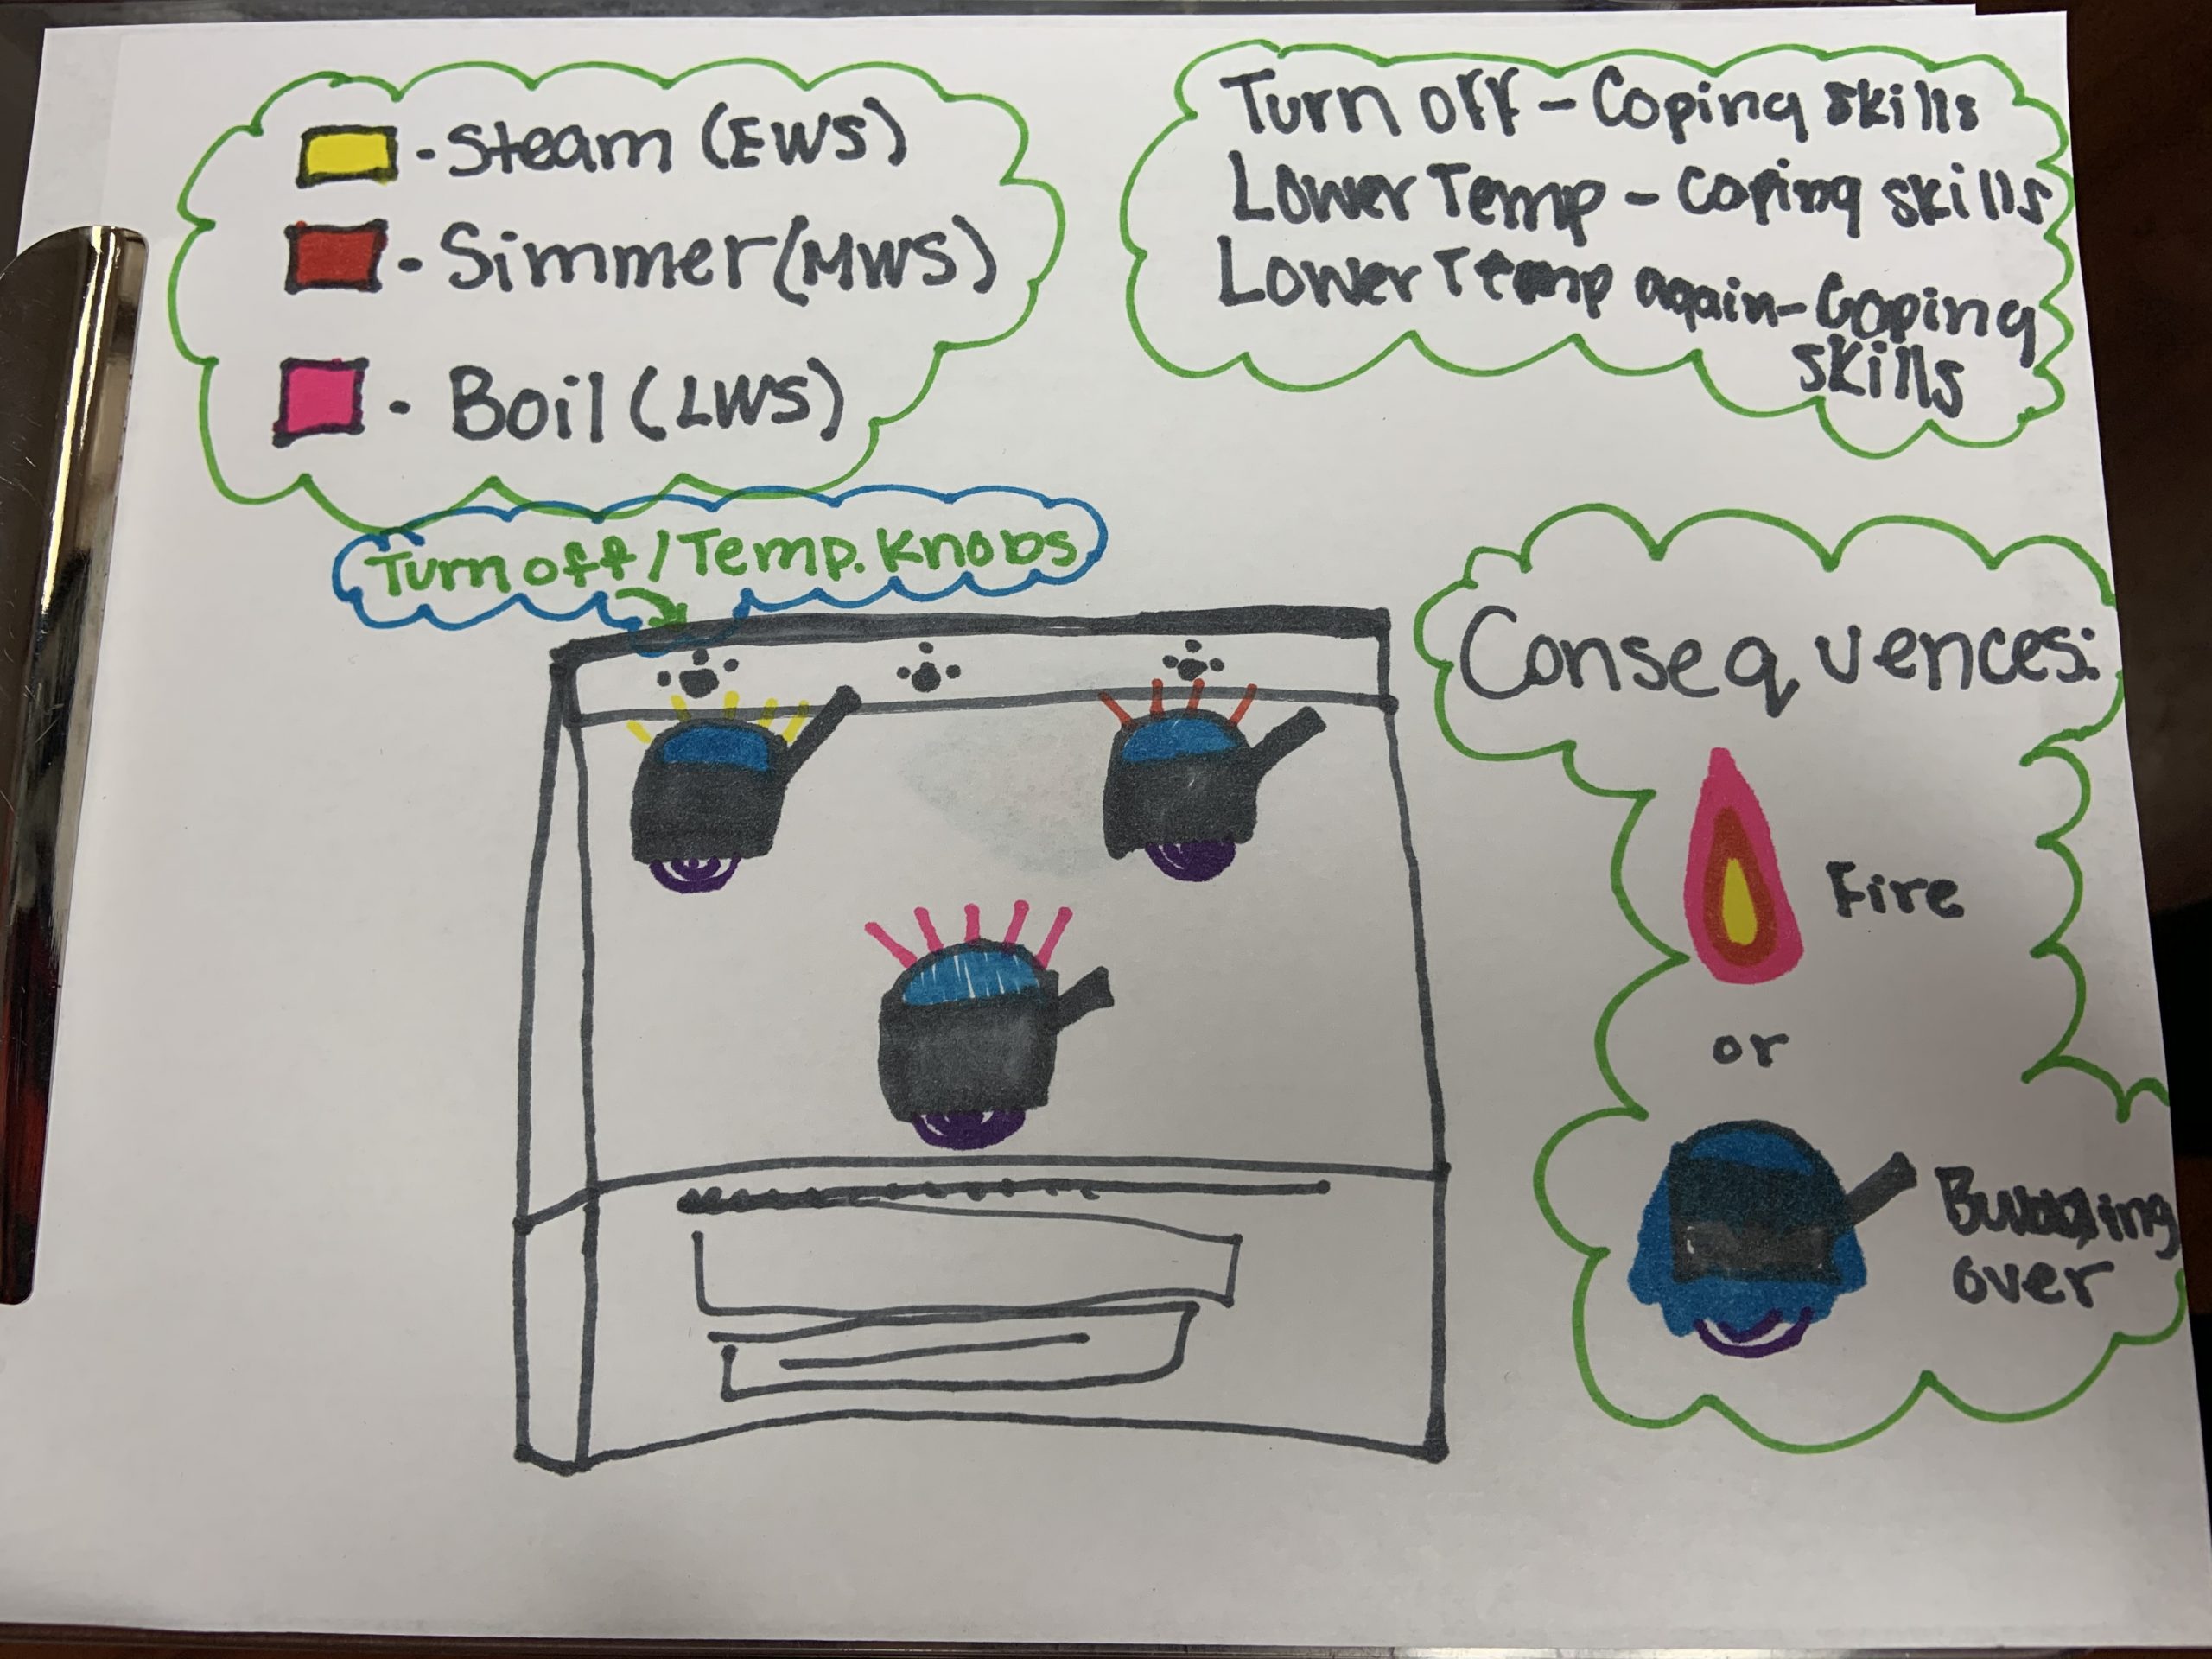 - Steam (EWS)
- Simmer (MWS)
- Boil (LWS)
Turn off - Coping skills
Lower Temp - Coping skills
Lower Temp again - Coping
skills
Turn off / Temp. Knobs
Consequences:
Fire
or
Bubbling
over